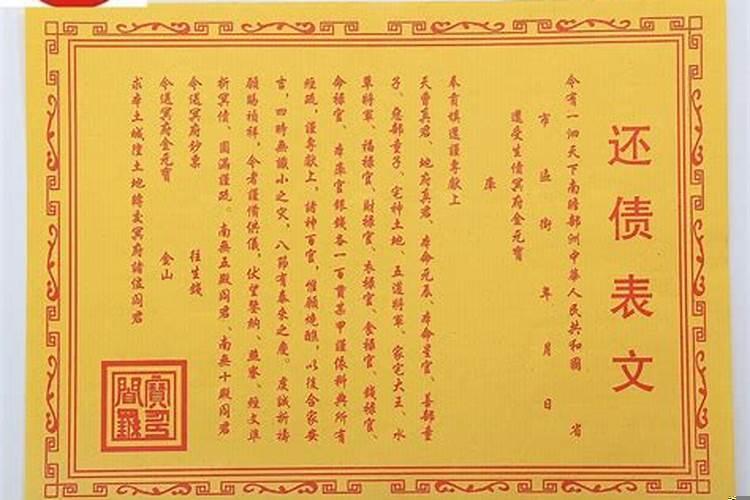 还债表文
今有一泗天下南瞻部洲中華人民共和國 省
市 區 街 年 月 日
還受生債冥府金元寶
庫
奉育填還謹專獻上
天曹真君、地府真君、本命元辰、本命星官、善部童
子、惡部童子、宅神土地、五道將軍、家宅大王、水
草將軍、福祿官、財祿官、衣祿官、食祿官、錢祿官、
命祿官、本庫官銀錢各一百貫某甲謹依科典所有
經疏，謹專獻上，諸神百官，惟願燒醮，以後合家安
吉，四時無識小之災，八節有泰來之慶。虔誠祈禱
願賜禎祥，令者謹備供儀，伏望鑒納、照察、經文準
折冥債、圓滿謹疏。南無五殿阎君、南無十殿阎君
令送冥府鈔票 往生錢
令送冥府金元寶 金山
求本土城隍土地轉交冥府諸位阎君